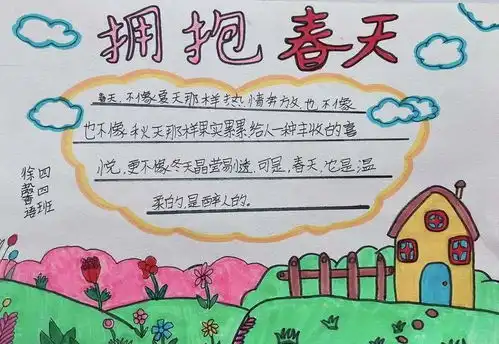 拥抱春天
春天,不像夏天那样热情奔放,也不像
也不像秋天那样果实累累,给人一种丰收的喜
悦,更不像冬天晶莹剔透,可是,春天,也是温
柔的,是醉人的。
四四班
徐馨语